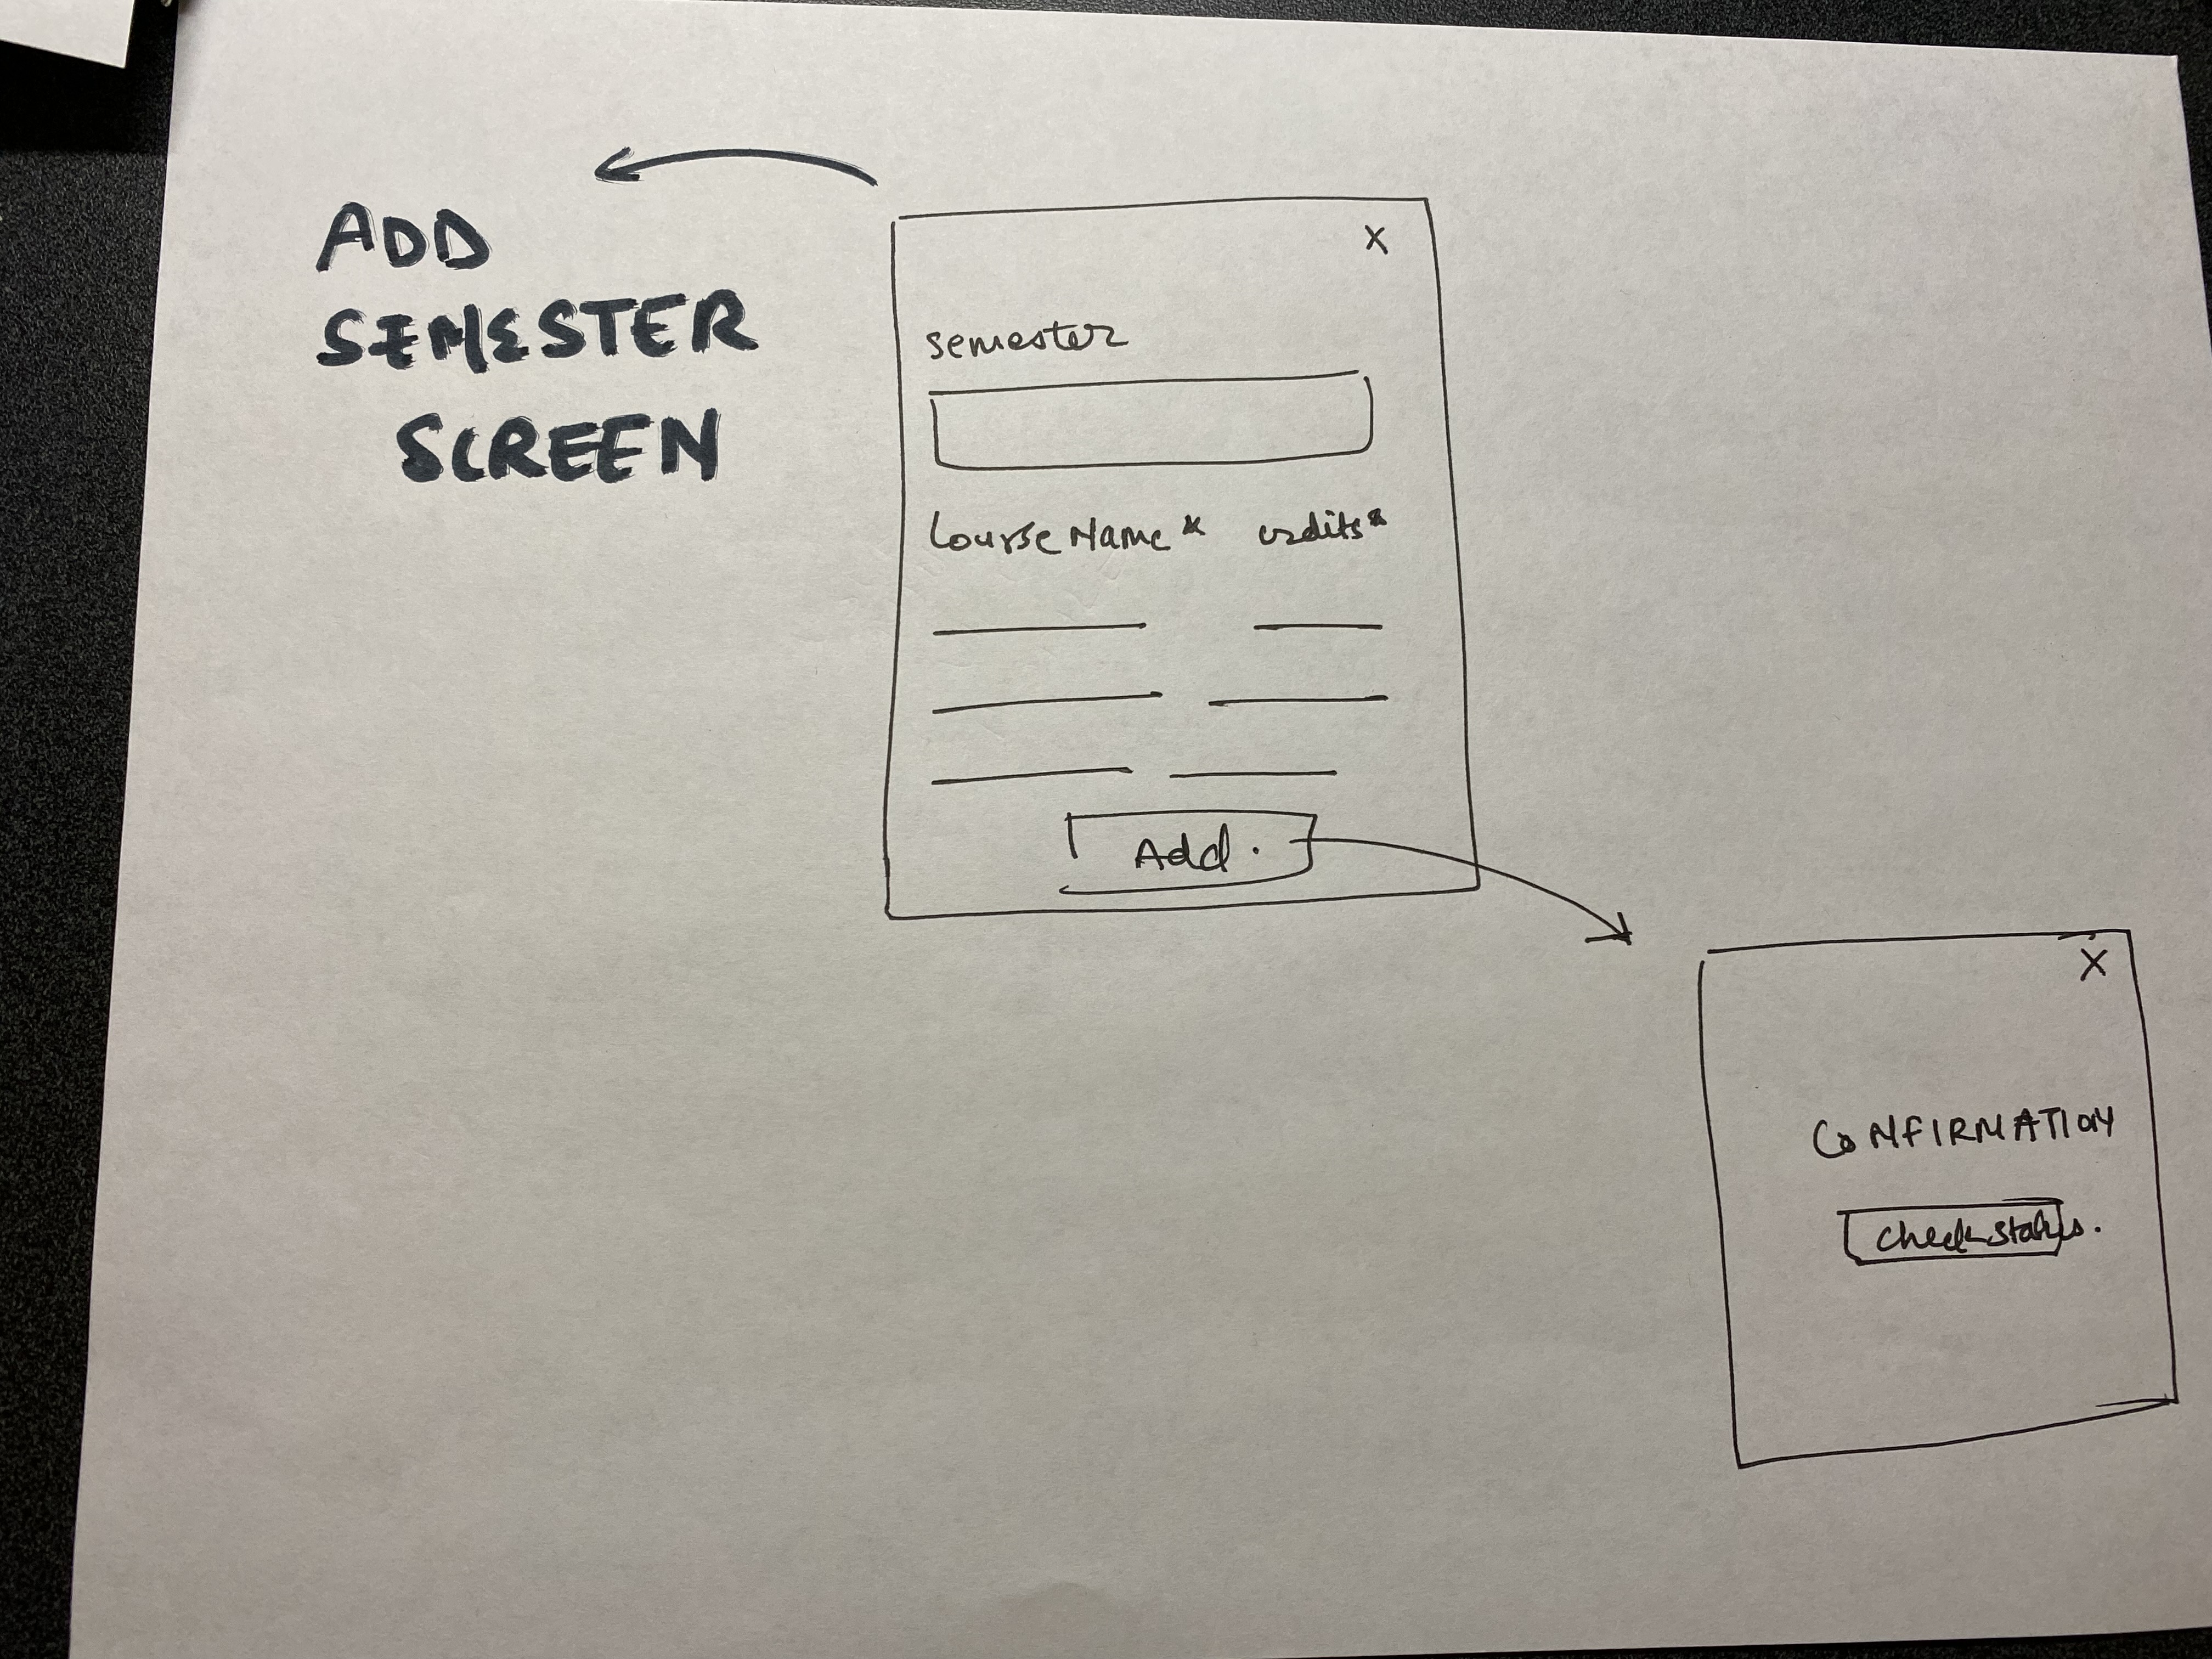 ADD
SEMESTER
SCREEN
X
semester
Course Name * credits *
Add.
X
CONFIRMATION
Check status.